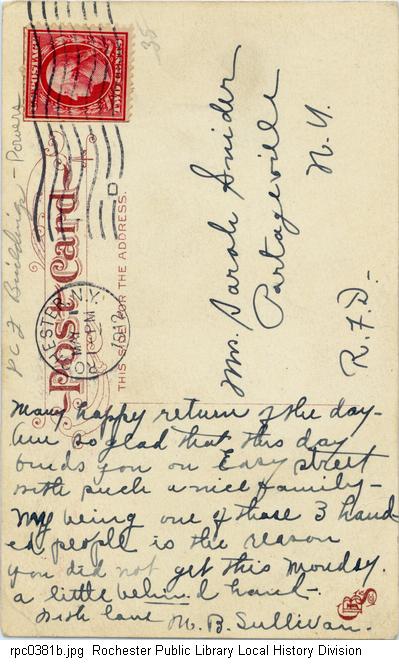 35
U.S. POSTAGE
TWO CENTS
PCJ Buildings - Powers
Post Card
THIS SIDE FOR THE ADDRESS.
ROCHESTER, N.Y.
PM
1912
Mrs. Sarah Snider
Portageville
N. Y.
R. F. D. -
Many happy return of the day -
Am so glad that this day
finds you on Easy street
with such a nice family -
My being one of those 3 hand-
ed people is the reason
you did not get this Monday.
a little behind hand -
With love M. B. Sullivan.
rpc0381b.jpg Rochester Public Library Local History Division